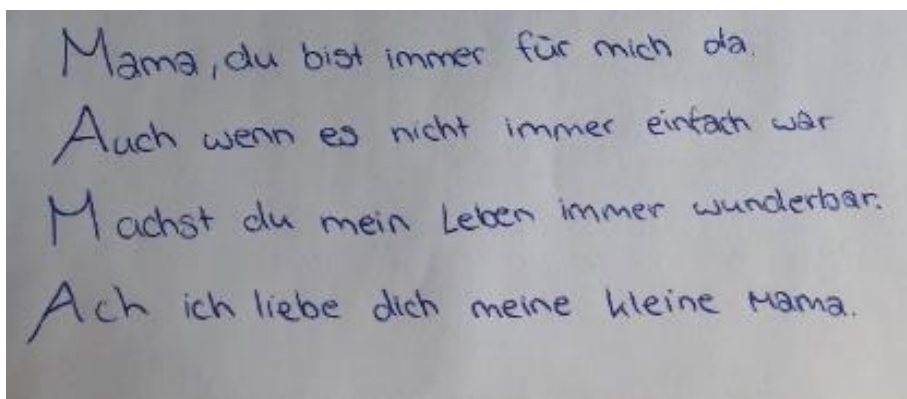 Mama, du bist immer für mich da.
Auch wenn es nicht immer einfach war
Machst du mein Leben immer wunderbar.
Ach ich liebe dich meine kleine Mama.